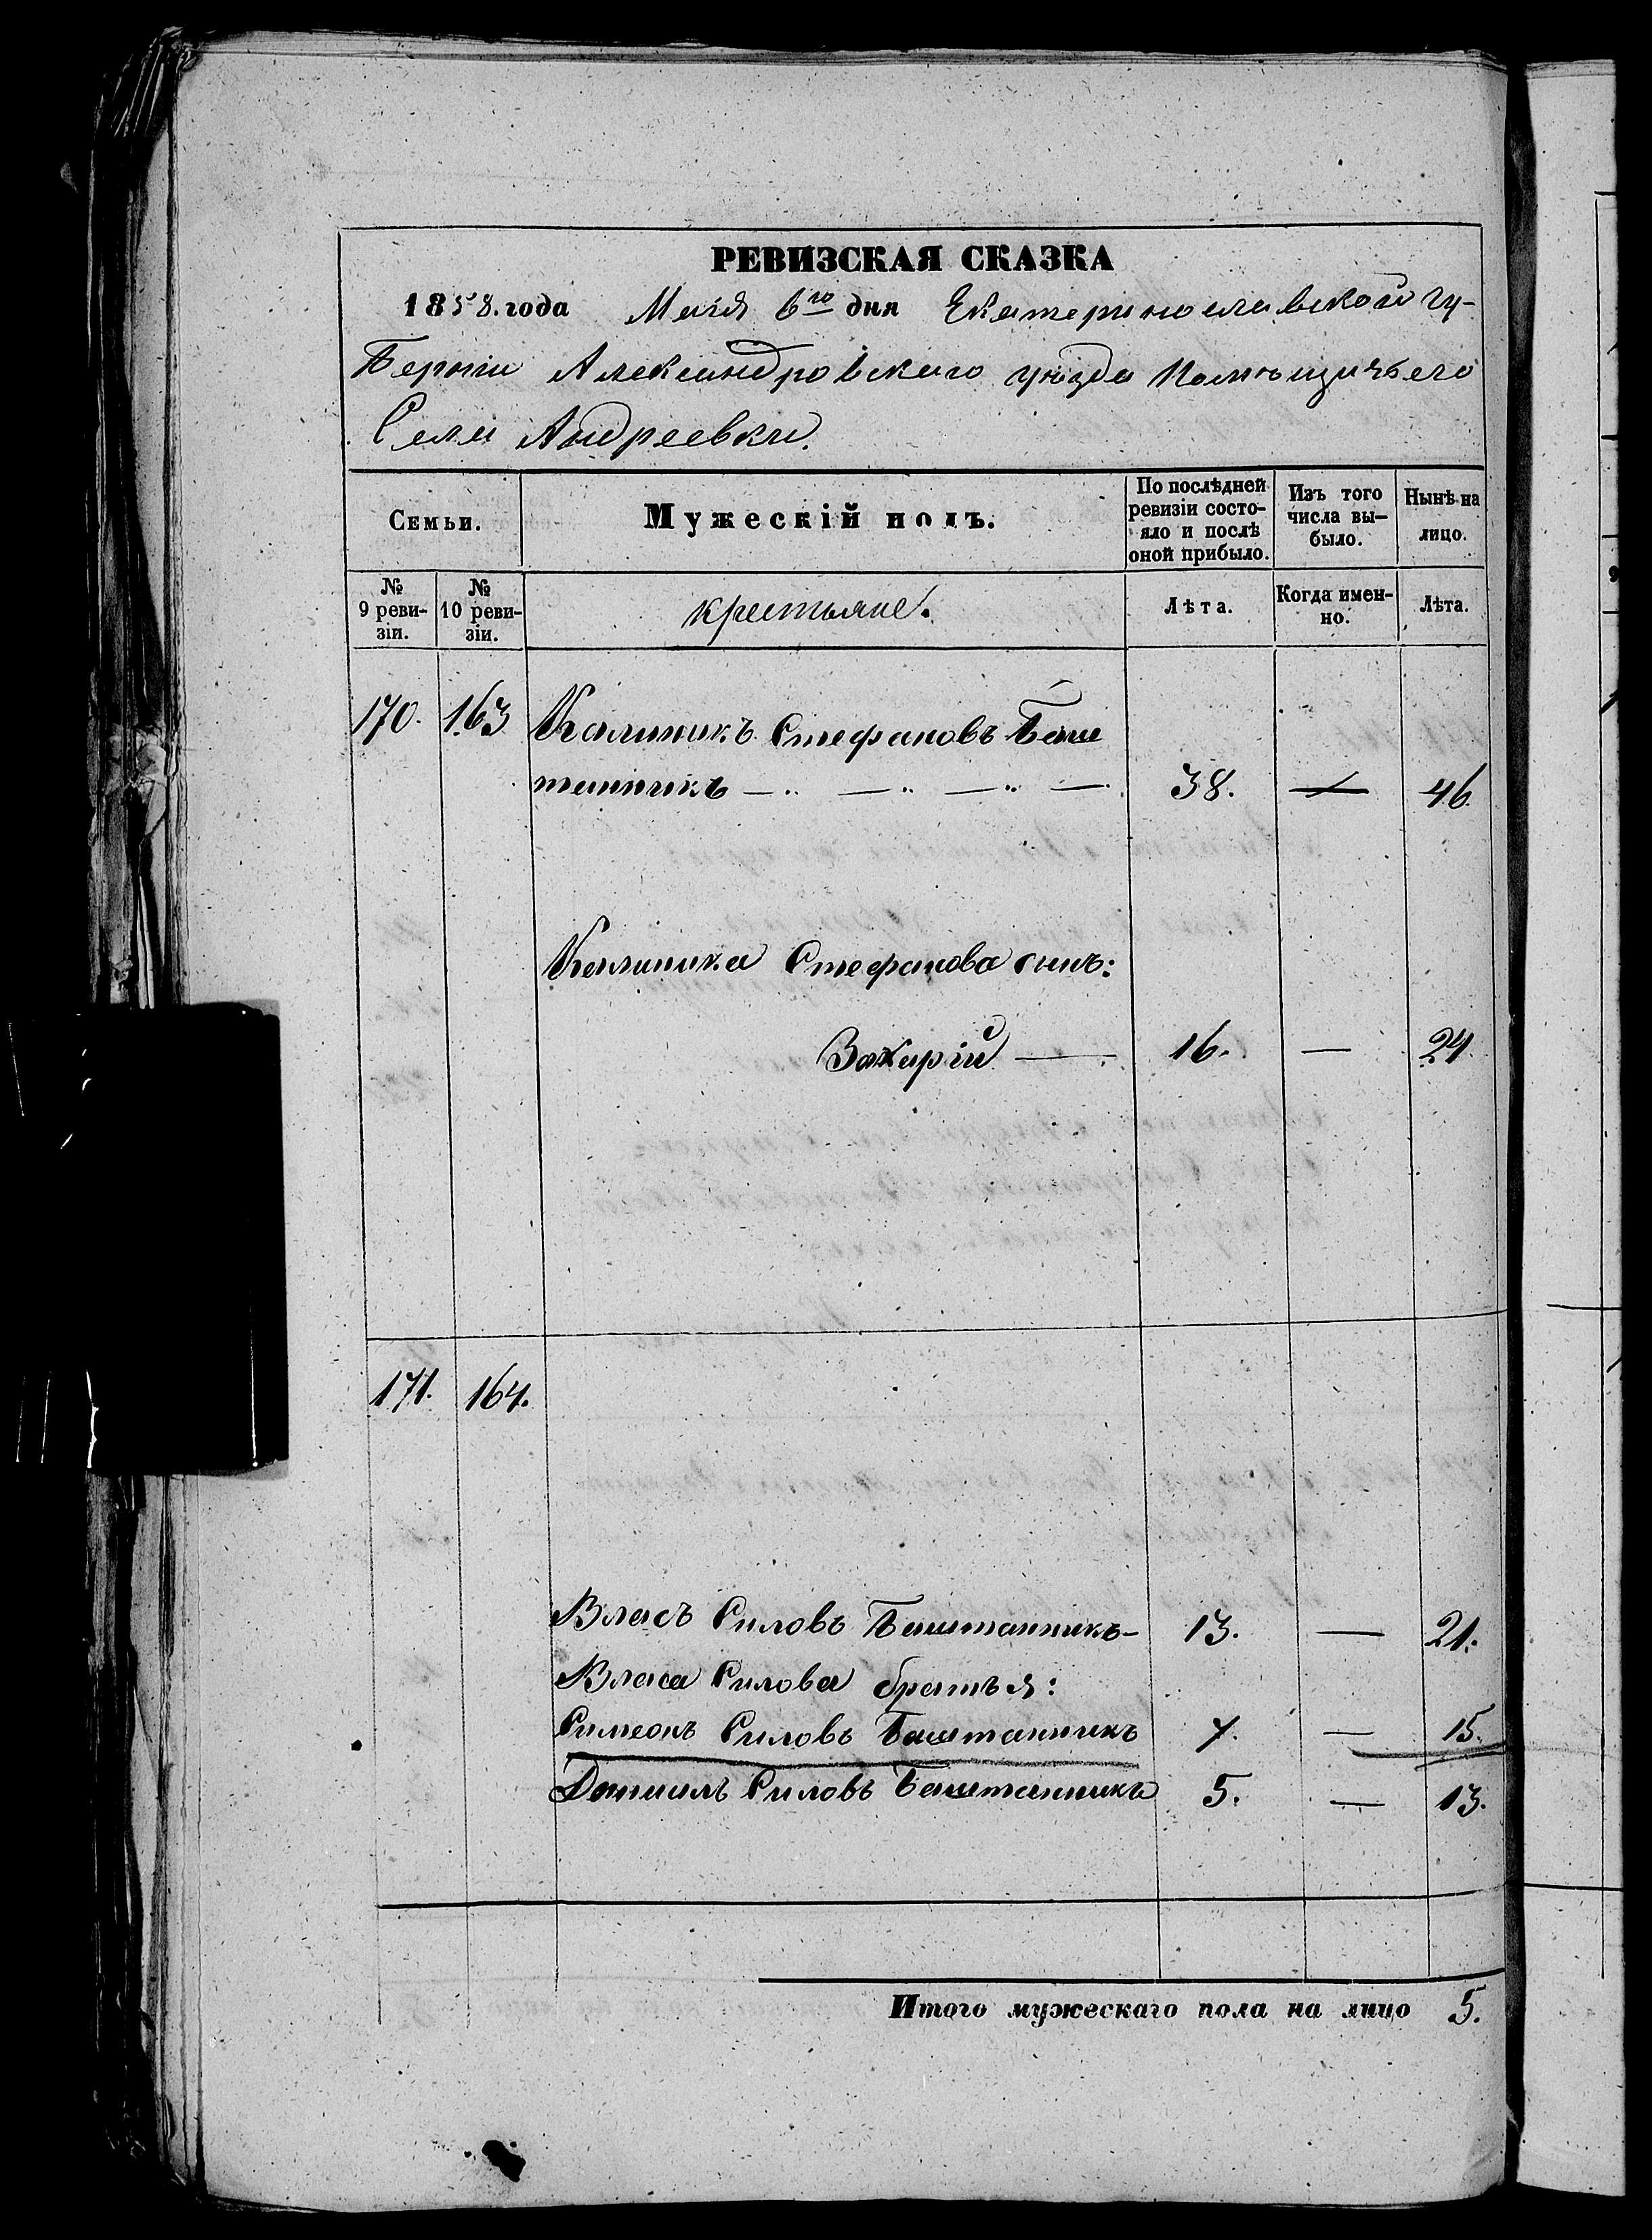 РЕВИЗСКАЯ СКАЗКА
1858. года Мая 6го дня Екатеринославской гу-
берніи Александровскаго уѣзда Помѣщичьего
Села Андреевки.
Семьи.
Мужескій полъ.
По послѣдней ревизіи состо-яло и послѣ оной прибыло.
Изъ того числа вы-было.
Нынѣ на лицо.
№ 9 реви-зіи.
№ 10 реви-зіи.
крестьяне.
Лѣта.
Когда имен-но.
Лѣта.
170. 163 Калиникъ Стефановъ Баш
танникъ — — — — 38. — 46
Калиника Стефанова сынъ:
Захарій — 16. — 24.
171. 164.
Власъ Силовъ Баштанникъ- 13. — 21.
Власа Силова братья:
Симеонъ Силовъ Баштанникъ 7. — 15.
Даніилъ Силовъ Баштанникъ 5. — 13.
Итого мужескаго пола на лицо 5.